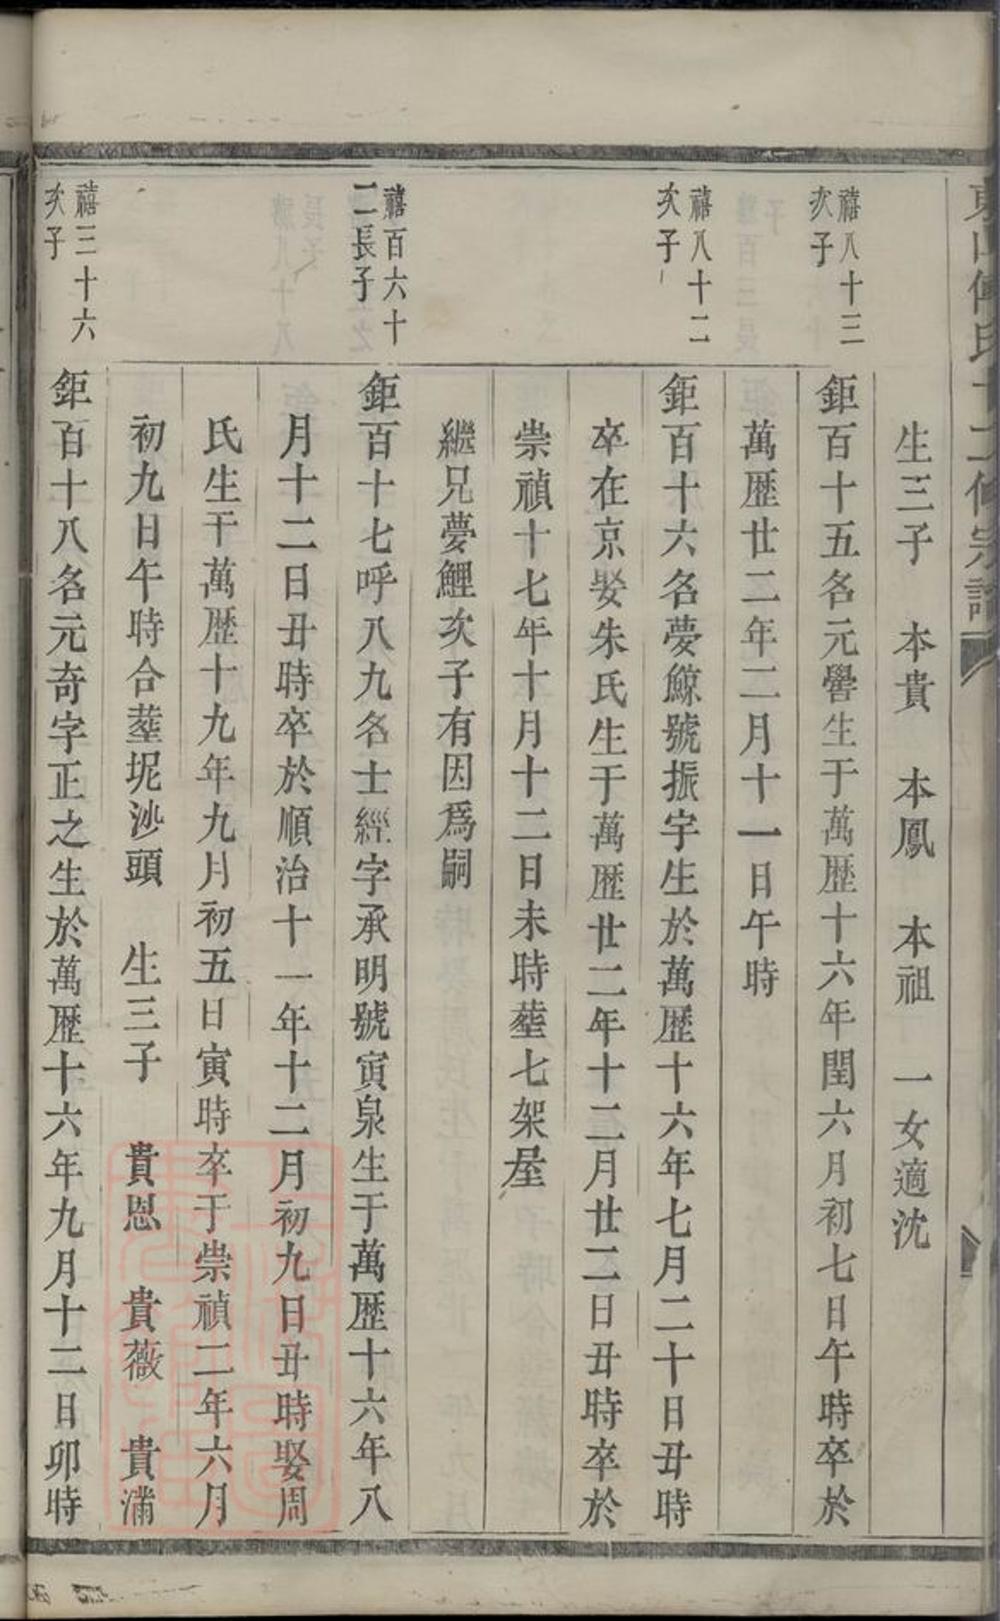 生三子　本貴　本鳳　本祖　一女適沈
禧八十三
次子
鉅百十五名元礐生于萬歷十六年閏六月初七日午時卒於
萬歷廿二年二月十一日午時
禧八十二
次子
鉅百十六名夢鯨號振宇生於萬歷十六年七月二十日丑時
卒在京娶朱氏生于萬歷廿二年十二月廿二日丑時卒於
崇禎十七年十月十二日未時塟七架屋
繼兄夢鯉次子有因爲嗣
禧百六十
二長子
鉅百十七呼八九名士經字承明號寅泉生于萬歷十六年八
月十二日丑時卒於順治十一年十二月初九日丑時娶周
氏生干萬歷十九年九月初五日寅時卒于崇禎二年六月
初九日午時合塟坭沙頭　生三子　貴恩　貴薇　貴滿
禧三十六
次子
鉅百十八名元奇字正之生於萬歷十六年九月十二日卯時